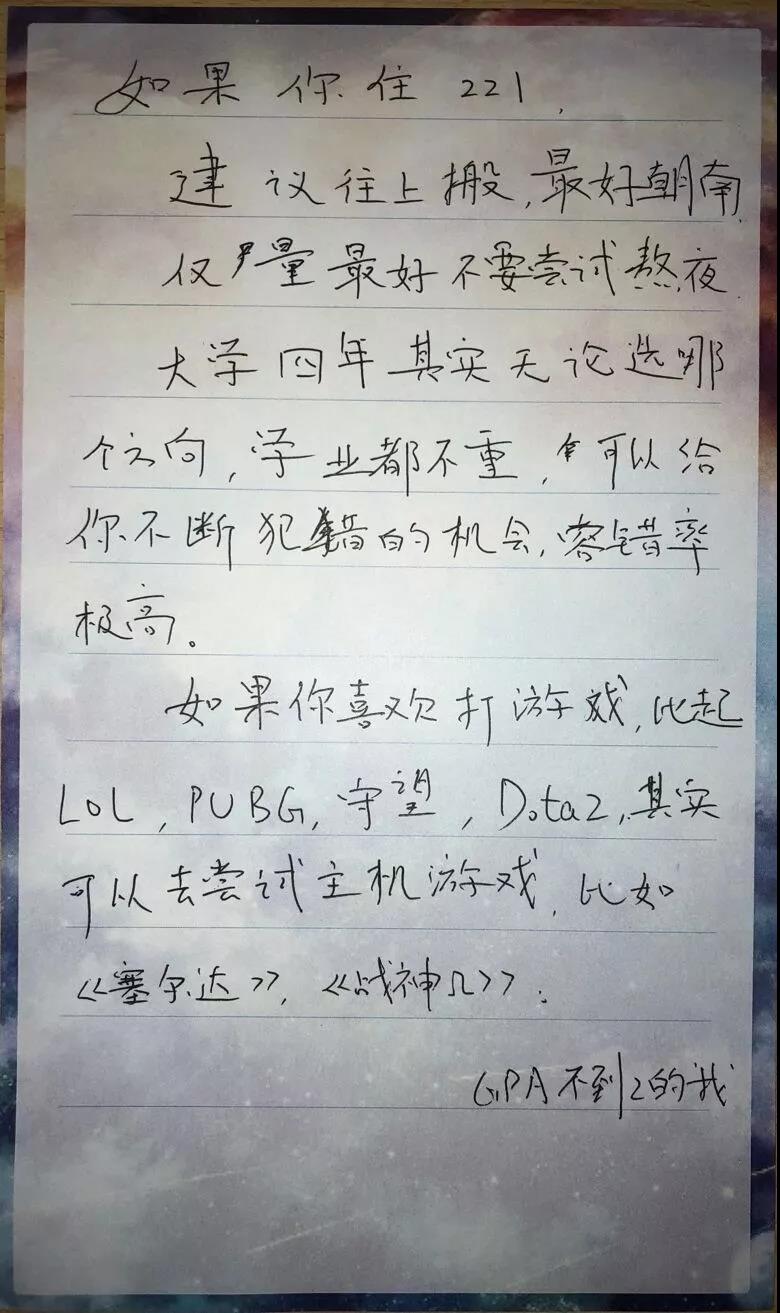 如果你住221,
建议往上搬,最好朝南
仅尽量最好不要尝试熬夜
大学四年其实无论选哪
个方向,学业都不重,可以给
你不断犯错的机会,容错率
极高。
如果你喜欢打游戏,比起
LoL,PUBG,守望,Dota2,其实
可以去尝试主机游戏,比如
《塞尔达》,《战神Ω》.
GPA不到2的我